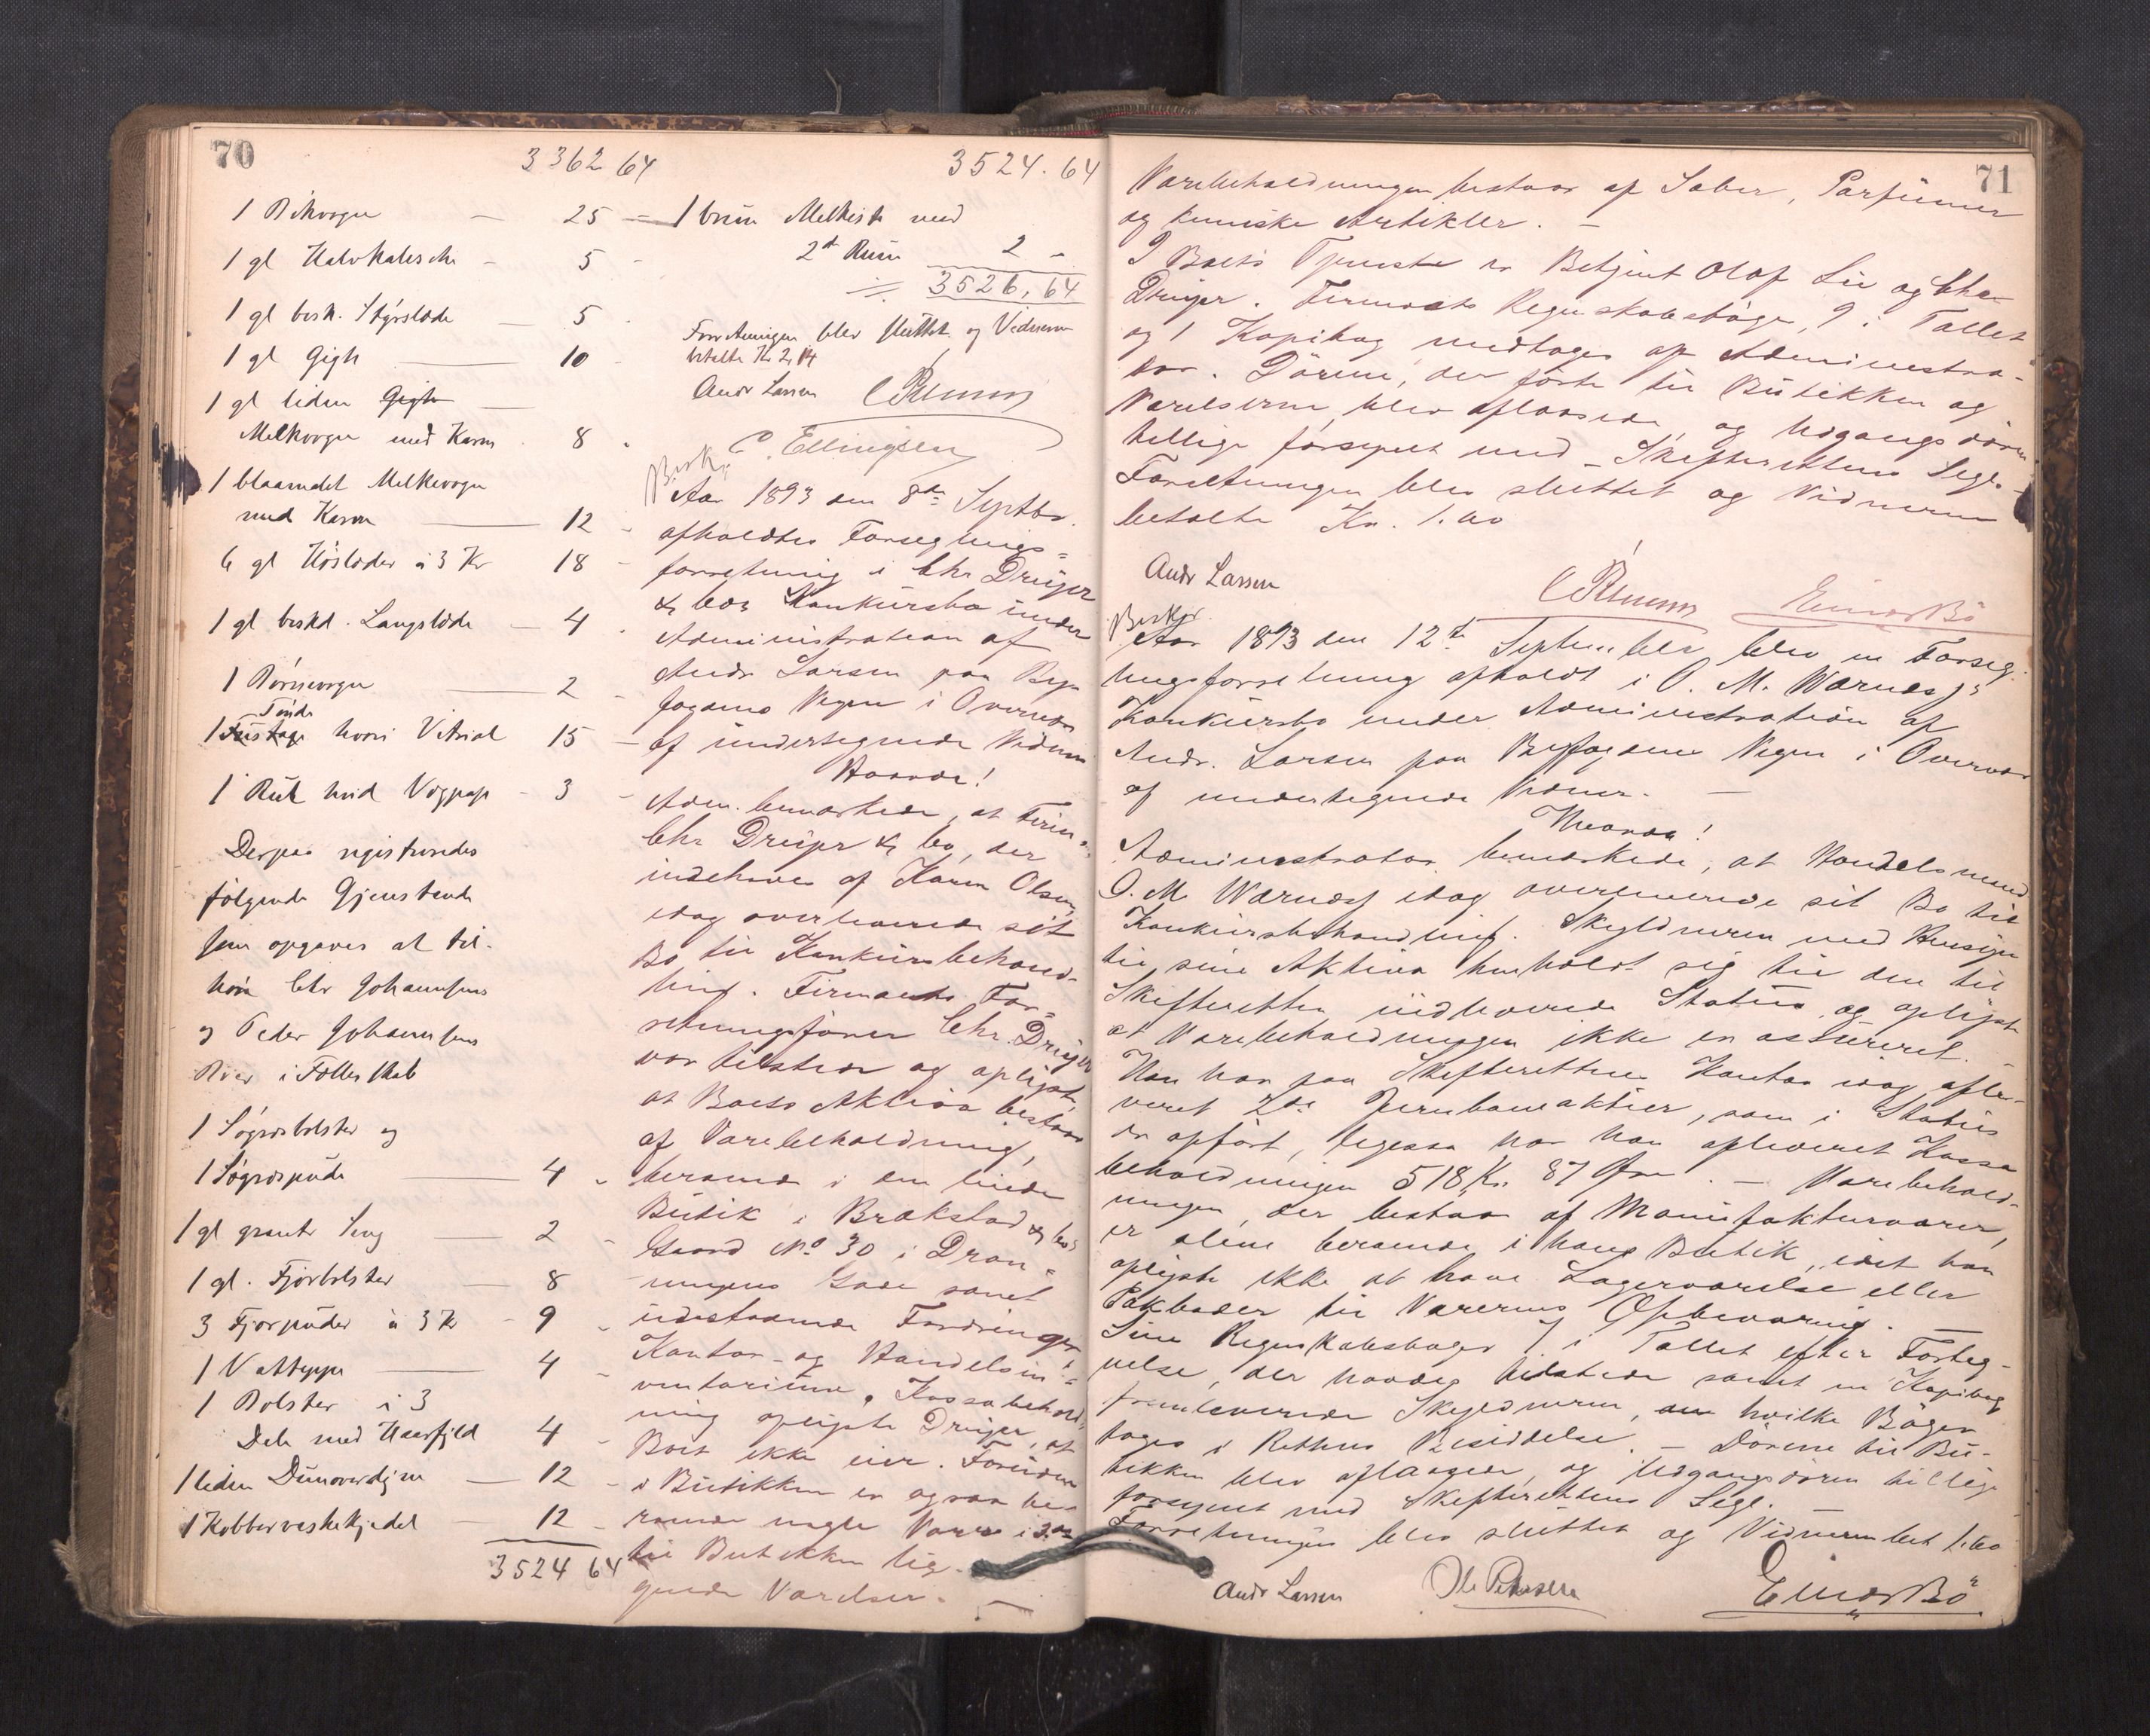 70
3362 64
1 gl Halvkalesche - 5 -
1 gl besk. - 5 -
1 gl Gigh - 10 -
1 gl liden Gigh -
Melkvogn med Karm - 8 -
1 blaamalet Melkevogn
med Karm - 12 -
6 gl Höslæder à 3 Kr 18 -
1 gl beskd. Langslæde - 4 -
1 Börnevogn - 2 -
Tönde
1 Fustage hvori Vitriol 15 -
1 hvid - 3 -
Derpaa registreredes
fölgende Gjenstande
som opgaves at til-
höre Chr Johannesens
og Peder Johannesens
Boer i Fællesskab
1 Søgræsbolster og
1 Søgræspude - 4 -
1 gl Seng - 2 -
1 gl. Fjærbolster - 8 -
3 Fjærpuder à 3 Kr - 9 -
1 Vatteppe - 4 -
1 Bolster i 3
Dele med Haarfyld 4 -
1 liden Dunoverdyne - 12 -
1 Kobbervaskekjedel - 12 -
3524 64
3524.64
1 brun Melkekiste med
2de Rum 2 -
3526,64
Forretningen blev sluttet og Vidnerne
betalte Kr 2,14
Andr Larsen
C. Ellingsen
Besk.
Aar 1893 den 8de Septbr.
afholdtes Forseglings=
forretning i Chr Dreyer
& Co's Konkursbo under
Administration af
Andr Larsen paa By-
fogdens Vegne i Overvær
af undertegnede Vidner
Hvorda!
Adm. bemærkede, at Firm
Chr Dreyer & Co, der
indehaves af Karen Olsen,
idag overleverede sit
Bo til Konkursbehand-
ling. Firmaets For=
retningsfører Chr. Dreyer
var tilstede og oplyste,
at Boets Aktiva bestaar
af Varebeholdning,
beroende i den leiede
Butik i Brækstad & Co's
Gaard No 30 i Dron=
ningens Gade samt
udestaaende Fordringer
Kontor- og Handelsin=
ventarium. Kassabehold-
ning oplyste Dreyer, at
Boet ikke eier. Foruden
i Butikken er ogsaa be-
roende nogle Varer i 2de
til Butikken lig-
gende Værelser. -
71
Varebeholdningen bestaar af Sæber, Parfumer
og kemiske Artikler. -
I Boets Tjeneste er Betjent Olaf Lie og Chr
Dreyer. Firmaets Regnskabsbøger, 9 i Tallet
og 1 Kopibog medtoges af Administra-
tor. Dørene, der førte til Butikken og
Værelserne, blev aflaasede, og Udgangsdøren
tillige forsynet med Skifterettens Segl. -
Forretningen blev sluttet og Vidnerne
betalte Kr. 1.60
Andr Larsen
Einar Bö
Beskr.
Aar 1893 den 12te September blev en Forseg-
lingsforretning afholdt i O. M. Wærness's
Konkursbo under Administration af
Andr. Larsen paa Byfogdens Vegne i Overvær
af undertegnede Vidner. -
Hvorda!
Administrator bemærkede, at Handelsmand
O. M. Wærness idag overleverede sit Bo til
Konkursbehandling. Skyldneren med Hensyn
til sine Aktiva henholdt sig til den til
Skifteretten indleverede Status og oplyste
at Varebeholdningen ikke er assureret. -
Han har paa Skifterettens Kontor idag afle-
veret 2de Jernbaneaktier, som i Status
er opført, ligesaa har han afleveret Kassa
beholdningen 518 Kr. 87 Øre. - Varebehold-
ningen, der bestaar af Manufakturvarer,
er alene beroende i hans Butik, idet han
oplyste ikke at have Lagerværelse eller
Pakboder til Varernes Opbevaring. -
Sine Regnskabsbøger 7 i Tallet efter Forteg-
nelse, der havdes tilstede samt en Kopibog
fremleverede Skyldneren, hvilke Bøger
toges i Rettens Besiddelse. - Dørene til Bu-
tikken blev aflaasede, og Udgangsdøren tillige
forsynet med Skifterettens Segl. -
Forretningen blev sluttet og Vidnerne bet 1.60
Andr Larsen
Ole Pedersen
Einar Bö